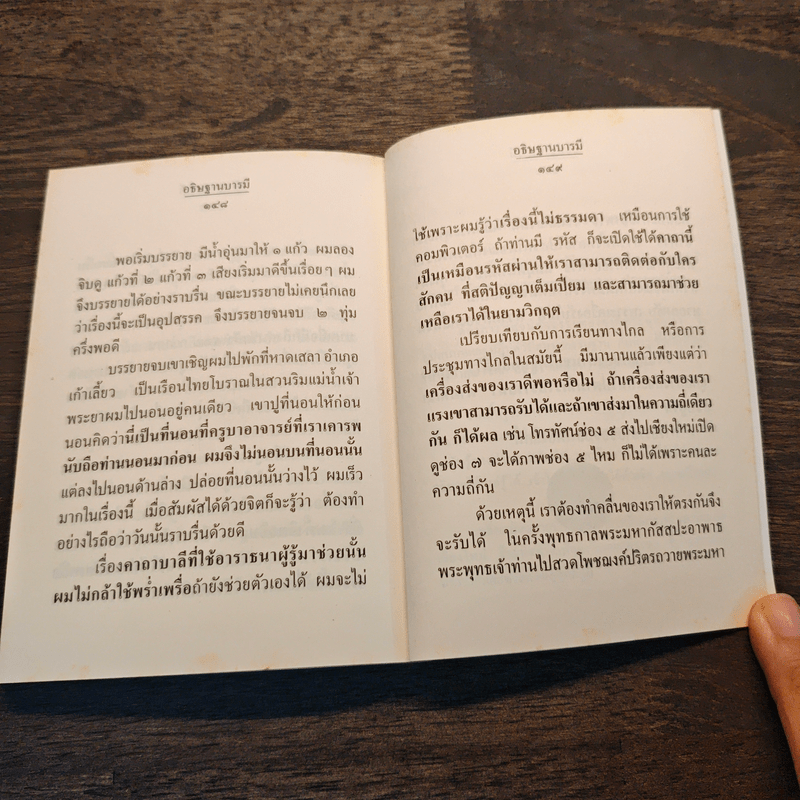 อธิษฐานบารมี
๑๔๘
พอเริ่มบรรยาย มีน้ำอุ่นมาให้ ๑ แก้ว ผมลอง
จิบดู แก้วที่ ๒ แก้วที่ ๓ เสียงเริ่มมาดีขึ้นเรื่อยๆ ผม
จึงบรรยายได้อย่างราบรื่น ขณะบรรยายไม่เคยนึกเลย
ว่าเรื่องนี้จะเป็นอุปสรรค จึงบรรยายจนจบ ๒ ทุ่ม
ครึ่งพอดี
บรรยายจบเขาเชิญผมไปพักที่หาดเสลา อำเภอ
เก้าเลี้ยว เป็นเรือนไทยโบราณในสวนริมแม่น้ำเจ้า
พระยาผมไปนอนอยู่คนเดียว เขาปูที่นอนให้ก่อน
นอนคิดว่านี่เป็นที่นอนที่ครูบาอาจารย์ที่เราเคารพ
นับถือท่านนอนมาก่อน ผมจึงไม่นอนบนที่นอนนั้น
แต่ลงไปนอนด้านล่าง ปล่อยที่นอนนั้นว่างไว้ ผมเร็ว
มากในเรื่องนี้ เมื่อสัมผัสได้ด้วยจิตก็จะรู้ว่า ต้องทำ
อย่างไรถือว่าวันนั้นราบรื่นด้วยดี
เรื่องคาถาบาลีที่ใช้อาราธนาผู้รู้มาช่วยนั้น
ผมไม่กล้าใช้พร่ำเพรื่อถ้ายังช่วยตัวเองได้ ผมจะไม่
อธิษฐานบารมี
๑๔๙
ใช้เพราะผมรู้ว่าเรื่องนี้ไม่ธรรมดา เหมือนการใช้
คอมพิวเตอร์ ถ้าท่านมี รหัส ก็จะเปิดใช้ได้คาถานี้
เป็นเหมือนรหัสผ่านให้เราสามารถติดต่อกับใคร
สักคน ที่สติปัญญาเต็มเปี่ยม และสามารถมาช่วย
เหลือเราได้ในยามวิกฤต
เปรียบเทียบกับการเรียนทางไกล หรือการ
ประชุมทางไกลในสมัยนี้ มีมานานแล้วเพียงแต่ว่า
เครื่องส่งของเราดีพอหรือไม่ ถ้าเครื่องส่งของเรา
แรงเขาสามารถรับได้และถ้าเขาส่งมาในความถี่เดียว
กัน ก็ได้ผล เช่น โทรทัศน์ช่อง ๕ ส่งไปเชียงใหม่เปิด
ดูช่อง ๗ จะได้ภาพช่อง ๕ ไหม ก็ไม่ได้เพราะคนละ
ความถี่กัน
ด้วยเหตุนี้ เราต้องทำคลื่นของเราให้ตรงกันจึง
จะรับได้ ในครั้งพุทธกาลพระมหากัสสปะอาพาธ
พระพุทธเจ้าท่านไปสวดโพชฌงค์ปริตรถวายพระมหา